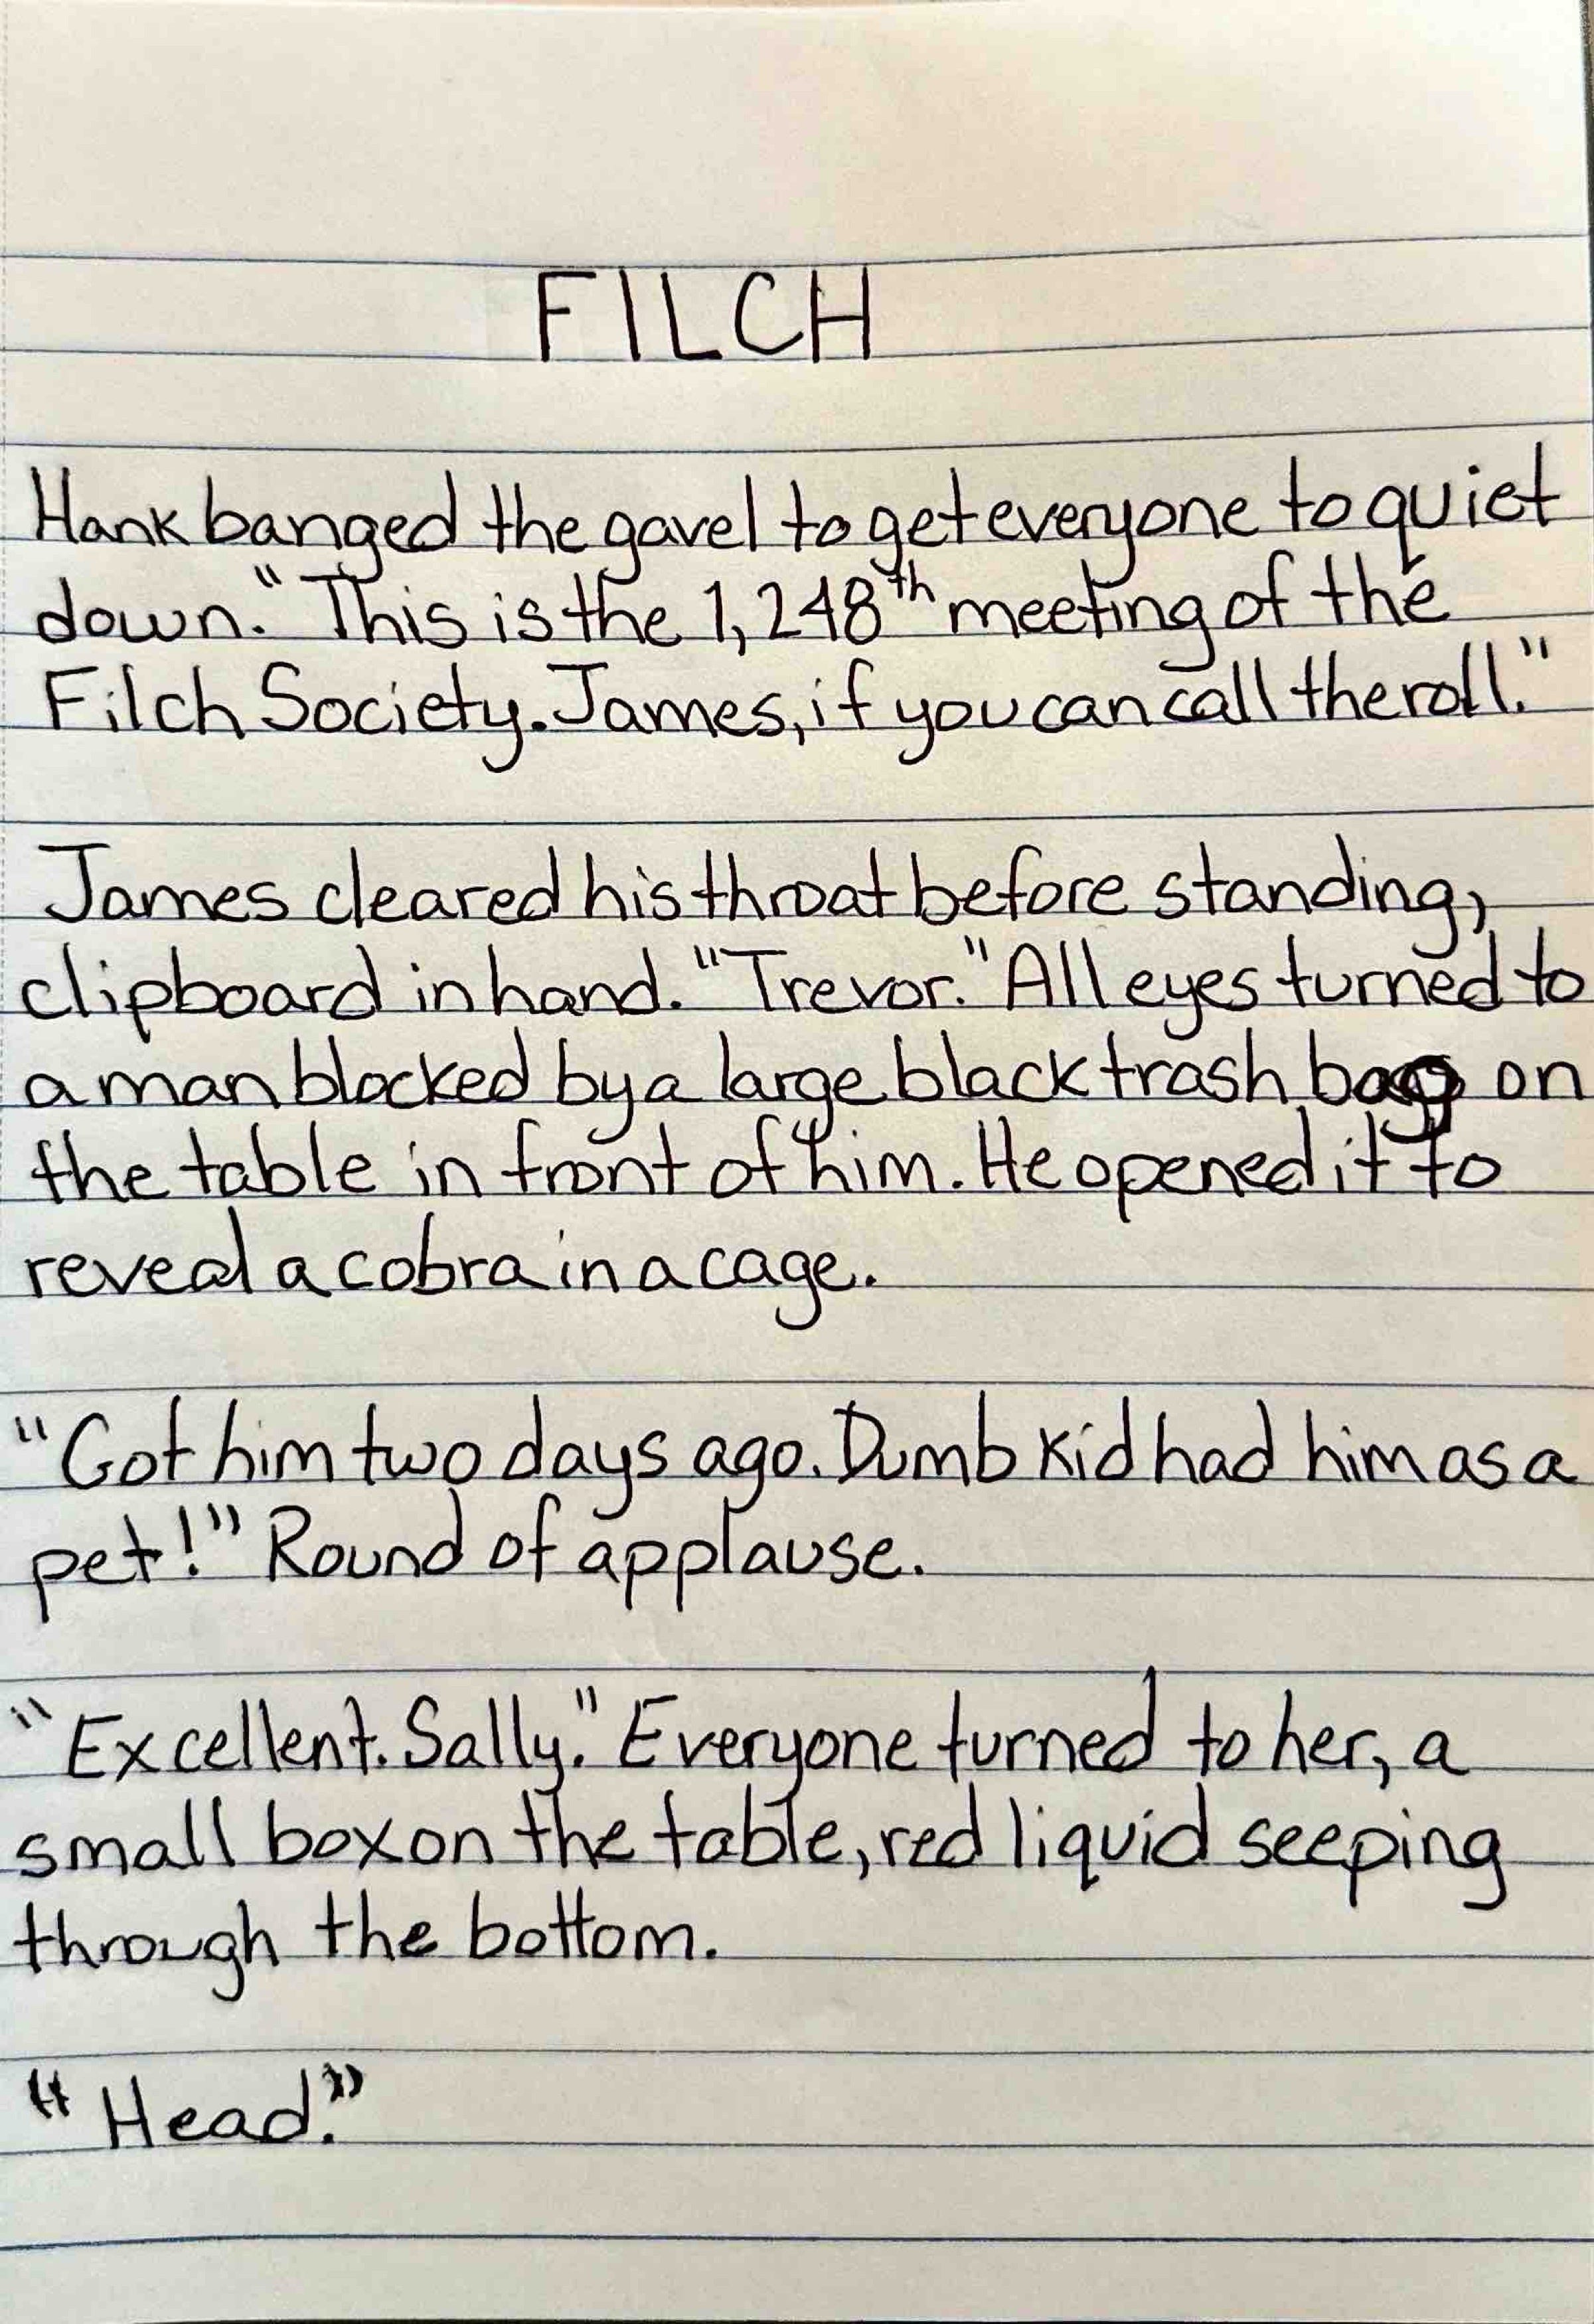 FILCH
Hank banged the gavel to get everyone to quiet
down. "This is the 1,248th meeting of the
Filch Society. James, if you can call the roll."
James cleared his throat before standing,
clipboard in hand. "Trevor." All eyes turned to
a man blocked by a large black trash bag on
the table in front of him. He opened it to
reveal a cobra in a cage.
"Got him two days ago. Dumb kid had him as a
pet!" Round of applause.
"Excellent. Sally." Everyone turned to her, a
small box on the table, red liquid seeping
through the bottom.
"Head."